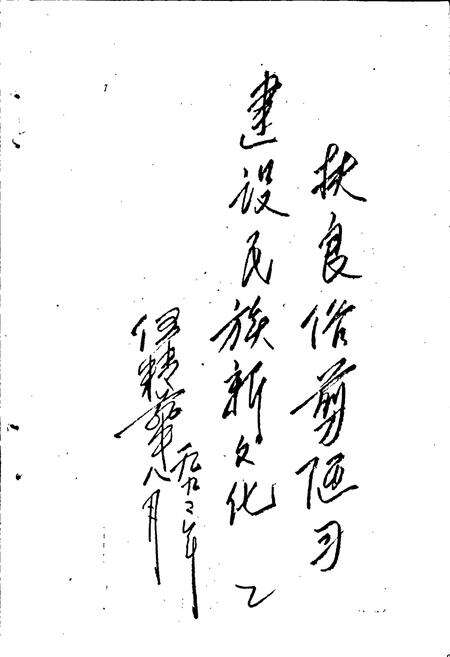 扶良俗剪陋习
建设民族新文化
伍精华
一九九二年
八月